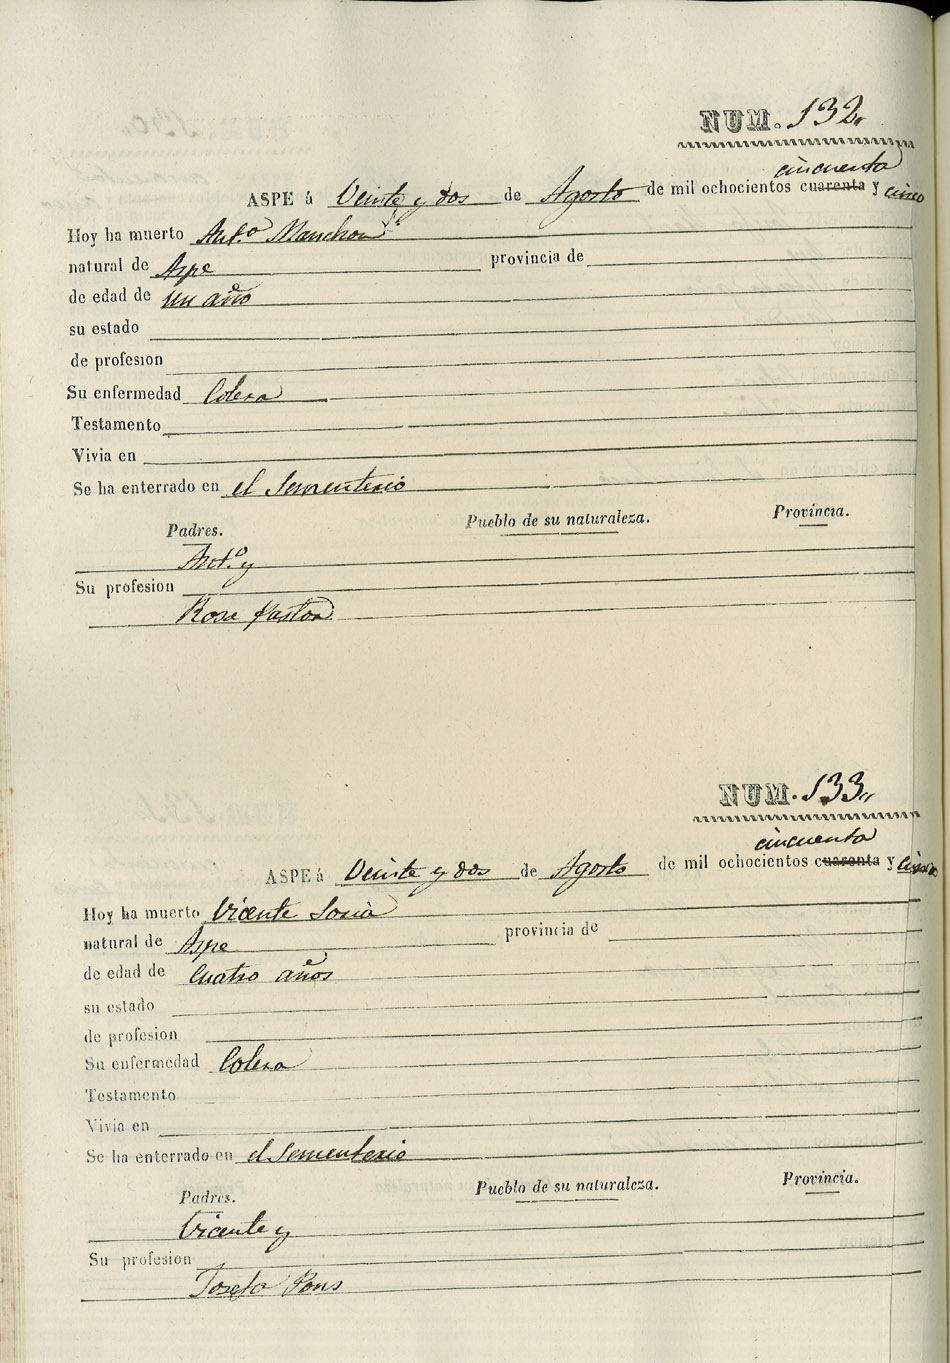 NUM. 132.
cincuenta
ASPE á Veinte y dos de Agosto de mil ochocientos cuarenta y cinco
Hoy ha muerto Ant.º Manchon
natural de Aspe provincia de
de edad de un año
su estado
de profesion
Su enfermedad Colera
Testamento
Vivia en
Se ha enterrado en el Sementerio
Padres. Pueblo de su naturaleza. Provincia.
Ant.º y
Su profesion
Rosa Pastor
NUM. 133.
cincuenta
ASPE á Veinte y dos de Agosto de mil ochocientos cuarenta y cinco
Hoy ha muerto Vicente Soria
natural de Aspe provincia de
de edad de Cuatro años
su estado
de profesion
Su enfermedad Colera
Testamento
Vivia en
Se ha enterrado en el Sementerio
Padres. Pueblo de su naturaleza. Provincia.
Vicente y
Su profesion
Josefa Pons